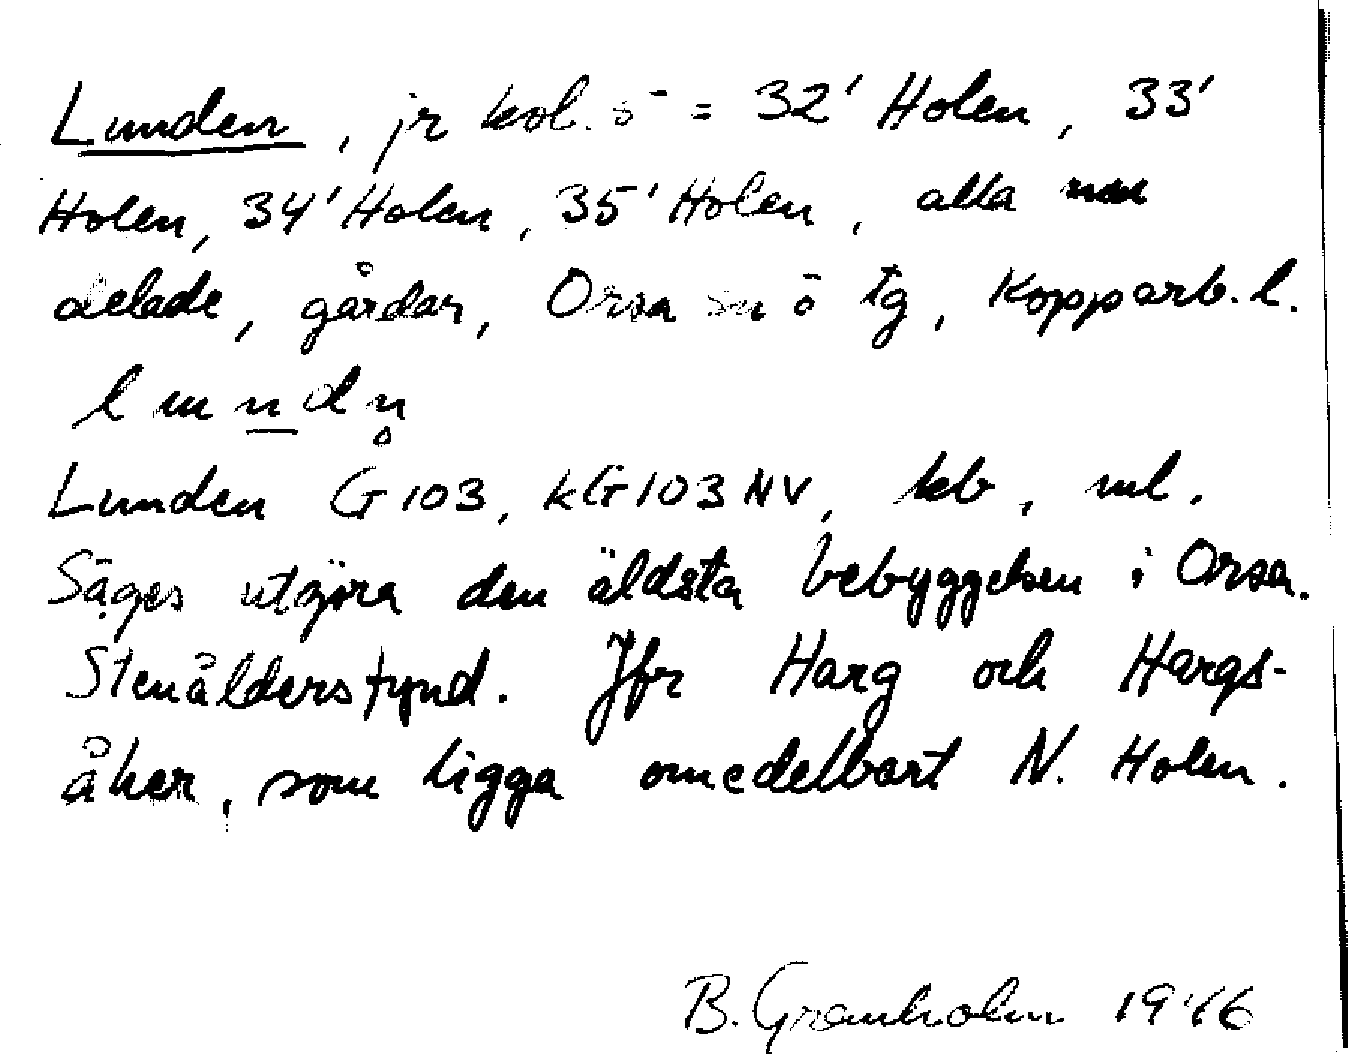 Lunden, jr kol. 5 = 32' Holen, 33'
Holen, 34' Holen, 35' Holen, alla
delade, gårdar, Orsa sn o tg, Kopparb. l.
Lunden G 103, kG 103 NV, kb, ml.
Säges utgöra den äldsta bebyggelsen i Orsa.
Stenåldersfynd. Jfr Harg och Hargs-
åker, som ligga omedelbart N. Holen.
B. Granholm 1946